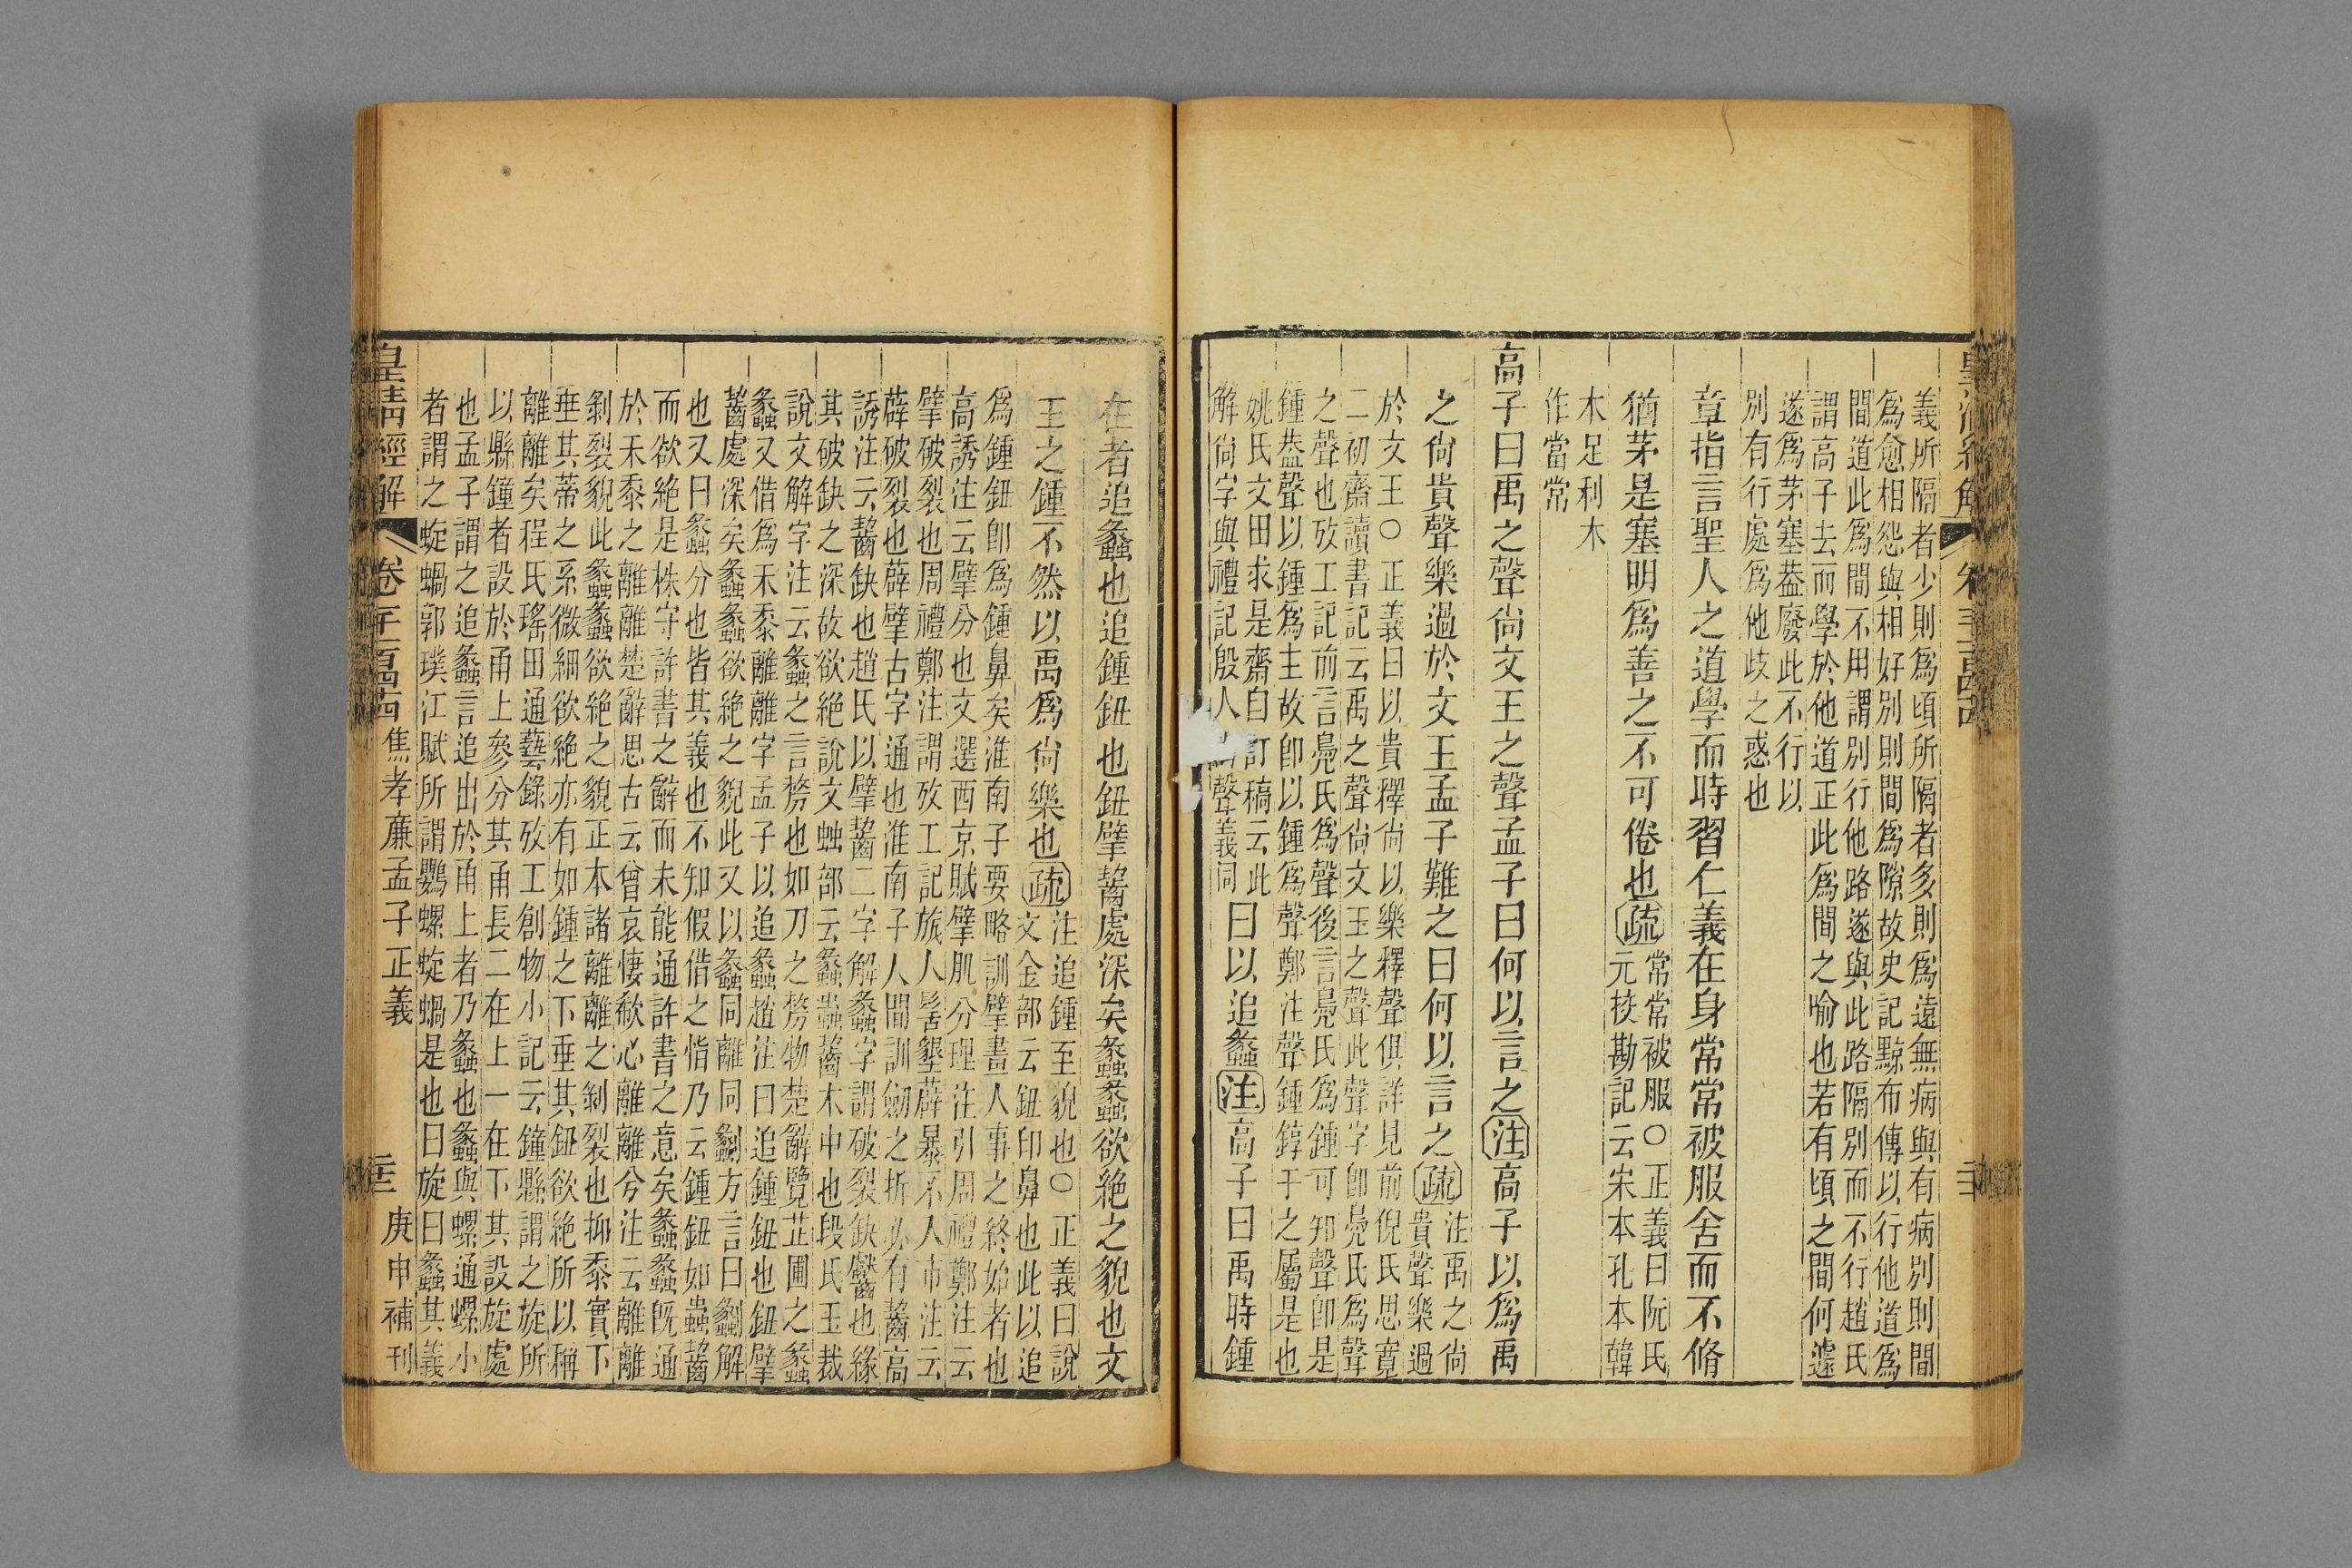 義所隔者少則爲頃所隔者多則爲遠無病與有病別則間
爲愈相怨與相好別則間爲隙故史記黥布傳以行他道爲
間道此爲間不用謂別行他路遂與此路隔別而不行趙氏
謂高子去而學於他道正此爲間之喻也若有頃之間何遽
遂爲茅塞葢廢此不行以
別有行處爲他歧之惑也
章指言聖人之道學而時習仁義在身常常被服舍而不脩
猶茅是塞明爲善之不可倦也疏常常被服○正義曰阮氏
元挍勘記云宋本孔本韓
木足利木
作當常
高子曰禹之聲尙文王之聲孟子曰何以言之注高子以爲禹
之尙貴聲樂過於文王孟子難之曰何以言之疏注禹之尙
貴聲樂過
於文王○正義曰以貴釋尙以樂釋聲俱詳見前倪氏思寬
二初齋讀書記云禹之聲尙文王之聲此聲字卽鳧氏爲聲
之聲也攷工記前言鳧氏爲聲後言鳧氏爲鍾可知聲卽是
鍾葢聲以鍾爲主故卽以鍾爲聲鄭注聲鍾錞于之屬是也
姚氏文田求是齋自訂稿云此
解尙字與禮記殷人聲義同
曰以追蠡注高子曰禹時鍾
在者追蠡也追鍾鈕也鈕擘齧處深矣蠡蠡欲絶之貌也文
王之鍾不然以禹爲尙樂也疏注追鍾至貌也○正義曰說
文金部云鈕印鼻也此以追
爲鍾鈕卽爲鍾鼻矣淮南子要略訓擘畫人事之終始者也
高誘注云擘分也文選西京賦擘肌分理注引周禮鄭注云
擘破裂也周禮鄭注謂攷工記旊人髺墾薜暴不入市注云
薜破裂也薜擘古字通也淮南子人間訓劒之折必有齧高
誘注云齧缺也趙氏以擘齧二字解蠡字謂破裂缺齾也緣
其破缺之深故欲絶說文䖵部云蠡蟲齧木中也段氏玉裁
說文解字注云蠡之言剺也如刀之剺物楚辭覽芷圃之蠡
蠡又借爲禾黍離離字孟子以追蠡趙注曰追鍾鈕也鈕擘
齧處深矣蠡蠡欲絶之貌此又以蠡同離同劙方言曰劙解
也又曰蠡分也皆其義也不知假借之恉乃云鍾鈕如蟲齧
而欲絶是株守許書之辭而未能通許書之意矣蠡蠡旣通
於禾黍之離離楚辭思古云曾哀悽欷心離離兮注云離離
剝裂貌此蠡蠡欲絶之貌正本諸離離之剝裂也抑黍實下
垂其蒂之系微細欲絶亦有如鍾之下垂其鈕欲絶所以稱
離離矣程氏瑤田通藝錄攷工創物小記云鐘縣謂之旋所
以縣鐘者設於甬上參分其甬長二在上一在下其設旋處
也孟子謂之追蠡言追出於甬上者乃蠡也蠡與螺通螺小
者謂之蜁蝸郭璞江賦所謂鸚螺蜁蝸是也曰旋曰蠡其義
皇清經解 卷千百四十四 焦孝廉孟子正義 庚申補刊